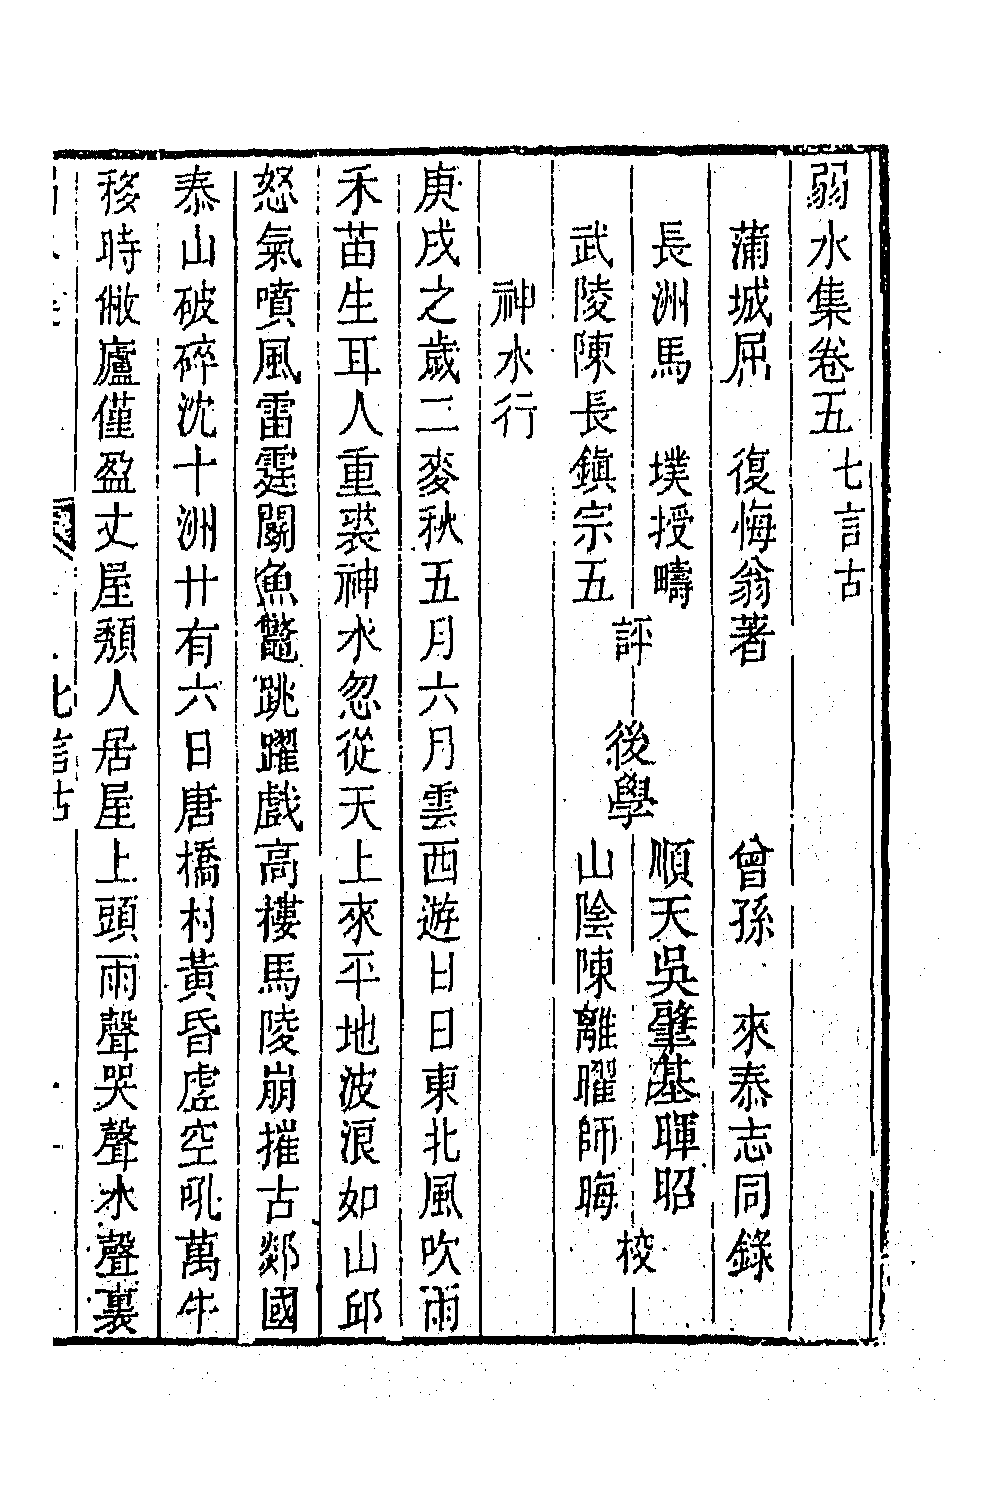 弱水集卷五 七言古
蒲城屈 復悔翁著 曾孫 來泰志同錄
長洲馬 墣授疇
武陵陳長鎮宗五
評
後學
順天吳肇基暉昭
山陰陳離曜師晦
校
神水行
庚戌之歲二麥秋五月六月雲西遊日日東北風吹雨
禾苗生耳人重裘神水忽從天上來平地波浪如山邱
怒氣噴風雷霆鬭魚鼈跳躍戲高樓馬陵崩摧古郯國
泰山破碎沈十洲廿有六日唐橋村黃昏虛空吼萬牛
移時敝廬僅盈丈屋頹人居屋上頭雨聲哭聲水聲裏
七言古